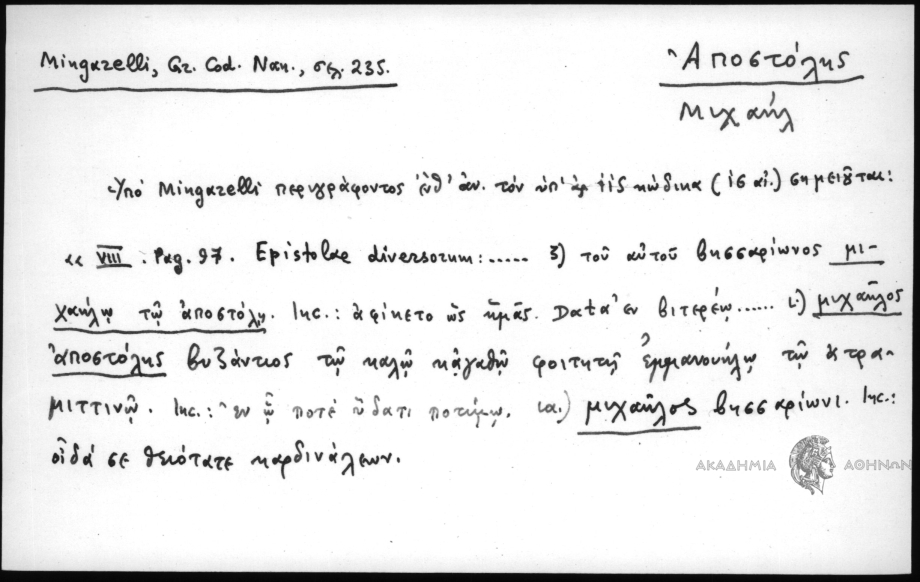 Mingarelli, Gr. Cod. Nan., σελ. 235.
Ἀποστόλης
Μιχαήλ
Ὑπό Mingarelli περιγράφοντος ἐνθ' ἀν. τόν ὑπ' ἀρ κώδικα (ις αἰ.) σημειοῦται:
«VIII. Pag. 97. Epistolae diversorum:..... 3) τοῦ αὐτοῦ βησσαρίωνος μι-
χαήλῳ τῷ ἀποστόλῃ. Inc.: ἀφίκετο ὡς ἡμᾶς. Data ἐν βιτερέῳ...... ι.) μιχαῆλος
ἀποστόλης βυζάντιος τῷ καλῷ κἀγαθῷ φοιτητῇ ἐμμανουήλῳ τῷ ἀτρα-
μιττινῷ. Inc.: ἐν ᾧ ποτέ ὕδατι ποτίμῳ. ια.) μιχαῆλος βησσαρίωνι. Inc.:
οἶδά σε θειότατε καρδινάλεων.
ΑΚΑΔΗΜΙΑ ΑΘΗΝΩΝ